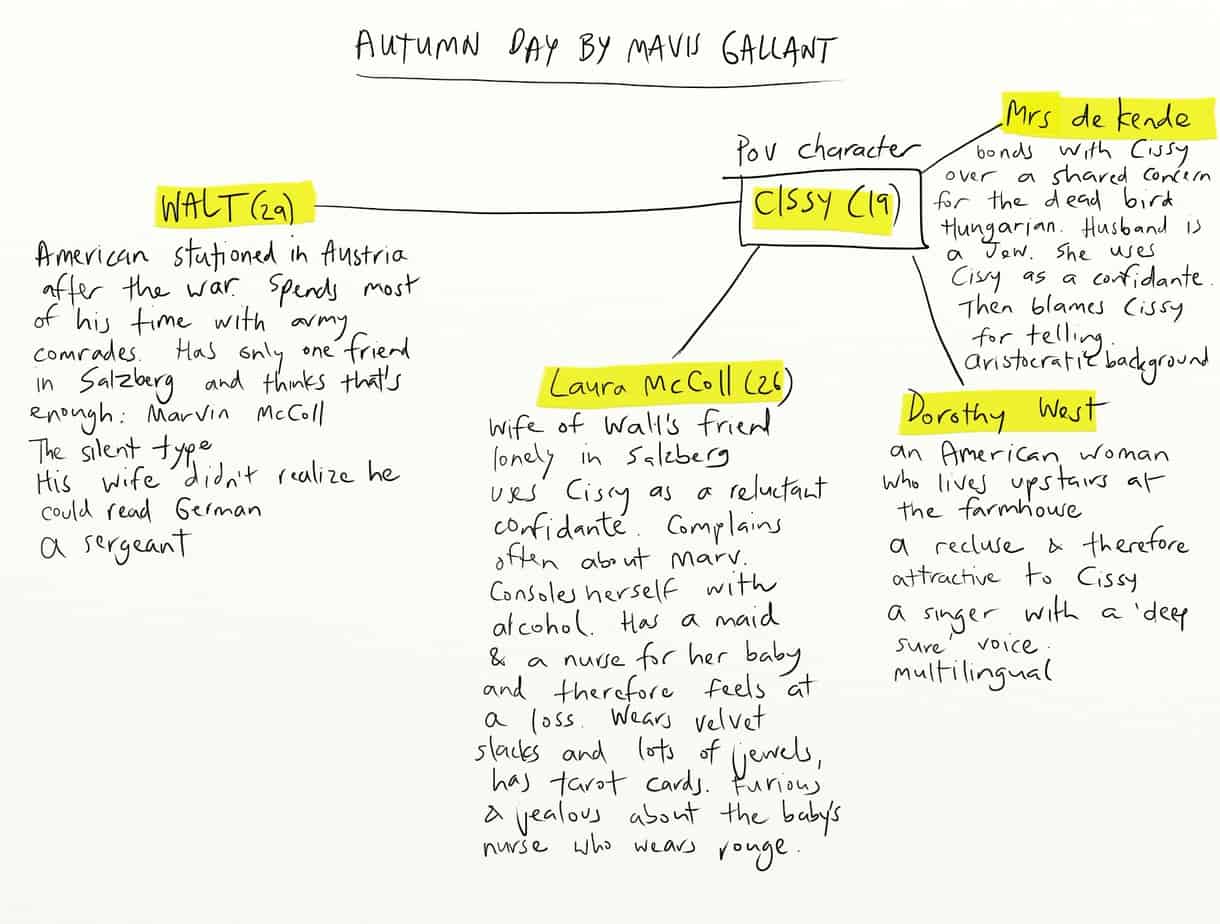 AUTUMN DAY BY MAVIS GALLANT
WALT (29)
American stationed in Austria
after the war. Spends most
of his time with army
comrades. Has only one friend
in Salzberg and thinks that's
enough: Marvin McColl
The silent type
His wife didn't realize he
could read German
a sergeant
Pov character
CISSY (19)
Mrs de Kende
bonds with Cissy
over a shared concern
for the dead bird
Hungarian. Husband is
a Jew. She uses
Cissy as a confidante.
Then blames Cissy
for telling.
aristocratic background
Laura McColl (26)
wife of Wall's friend
lonely in Salzberg
uses Cissy as a reluctant
confidante. Complains
often about Marv.
Consoles herself with
alcohol. Has a maid
& a nurse for her baby
and therefore feels at
a loss. Wears velvet
slacks and lots of jewels,
has tarot cards. Furious
& jealous about the baby's
nurse who wears rouge.
Dorothy West
an American woman
who lives upstairs at
the farmhouse
a recluse & therefore
attractive to Cissy
a singer with a 'deep
sure' voice.
multilingual